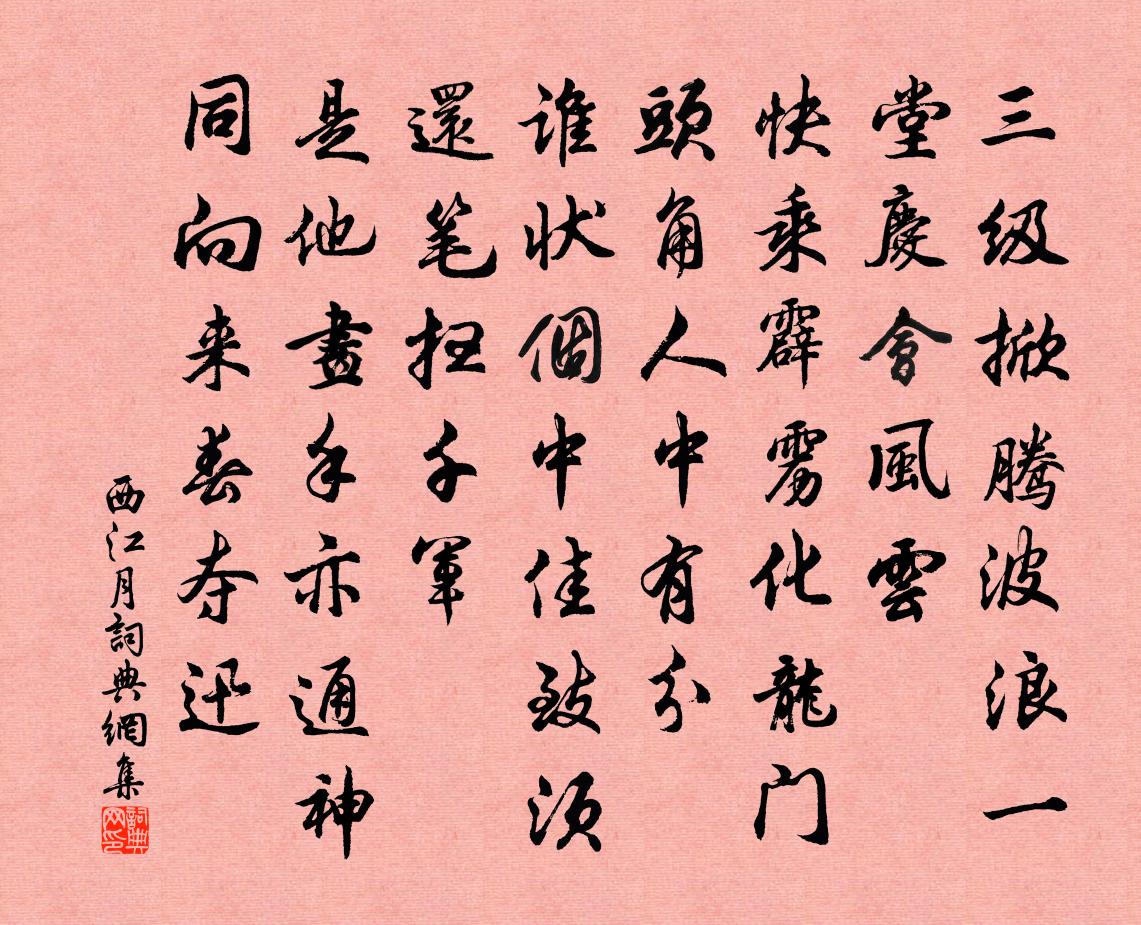 三级掀腾波浪一
堂慶會風雲
快乘霹雳化龍门
頭角人中有分
谁状個中佳致须
還笔扫千軍
是他畫手亦通神
同向来春夺迅
西江月詞典網集
詞典网印